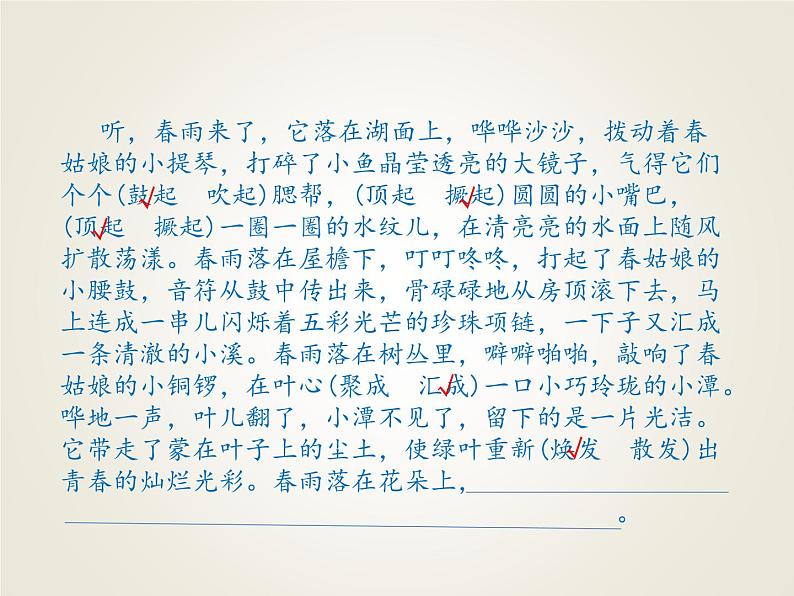 听，春雨来了，它落在湖面上，哗哗沙沙，拨动着春
姑娘的小提琴，打碎了小鱼晶莹透亮的大镜子，气得它们
个个(鼓起　吹起)腮帮，(顶起　撅起)圆圆的小嘴巴，
(顶起　撅起)一圈一圈的水纹儿，在清亮亮的水面上随风
扩散荡漾。春雨落在屋檐下，叮叮咚咚，打起了春姑娘的
小腰鼓，音符从鼓中传出来，骨碌碌地从房顶滚下去，马
上连成一串儿闪烁着五彩光芒的珍珠项链，一下子又汇成
一条清澈的小溪。春雨落在树丛里，噼噼啪啪，敲响了春
姑娘的小铜锣，在叶心(聚成　汇成)一口小巧玲珑的小潭。
哗地一声，叶儿翻了，小潭不见了，留下的是一片光洁。
它带走了蒙在叶子上的尘土，使绿叶重新(焕发　散发)出
青春的灿烂光彩。春雨落在花朵上，
。